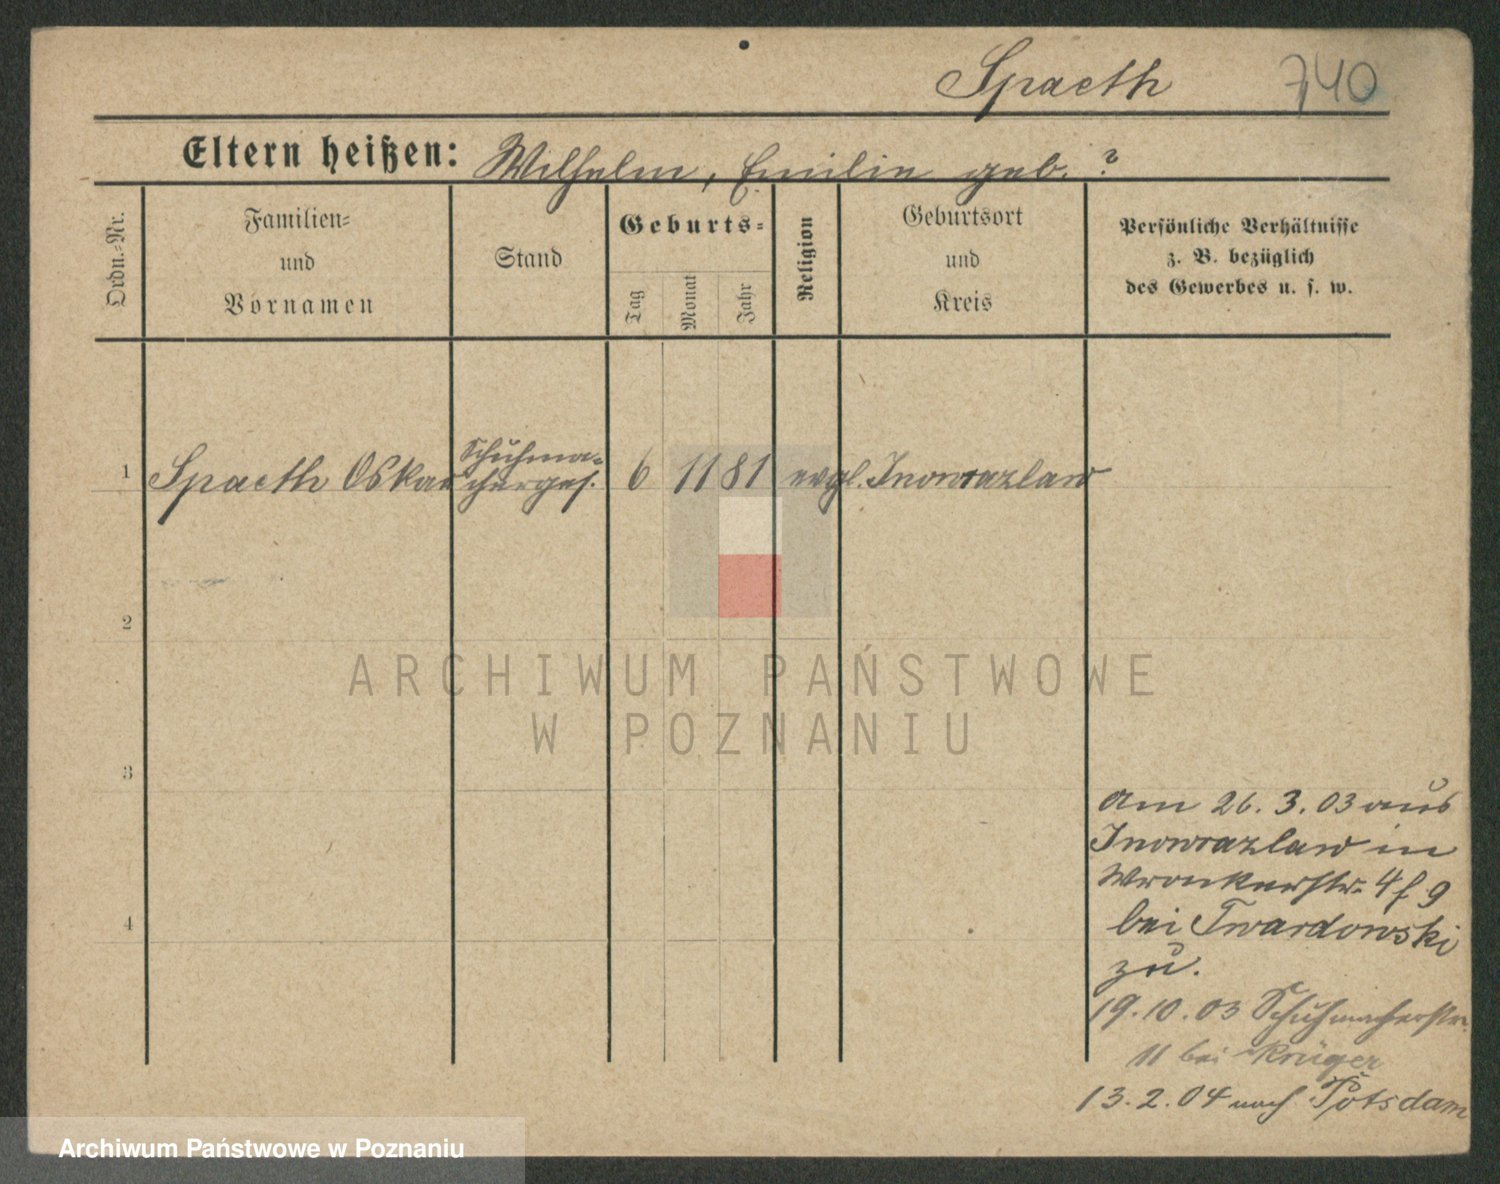 Spaeth 740
Eltern heißen: Wilhelm, Emilie geb. ?
Ordn.-Nr.
Familien-
und
Vornamen
Stand
Geburts-
Tag
Monat
Jahr
Religion
Geburtsort
und
Kreis
Persönliche Verhältnisse
z. B. bezüglich
des Gewerbes u. s. w.
Schuhma-
1 Spaeth Oskar cherges. 6 11 81 evgl. Inowrazlaw
2
3
4
ARCHIWUM PAŃSTWOWE
W POZNANIU
Am 26. 3. 03 aus
Inowrazlaw in
Wronkerstr. 4 f 9
bei Twardowski
zu.
19. 10. 03 Schuhmacherstr.
11 bei Krüger
13. 2. 04 nach Potsdam
Archiwum Państwowe w Poznaniu